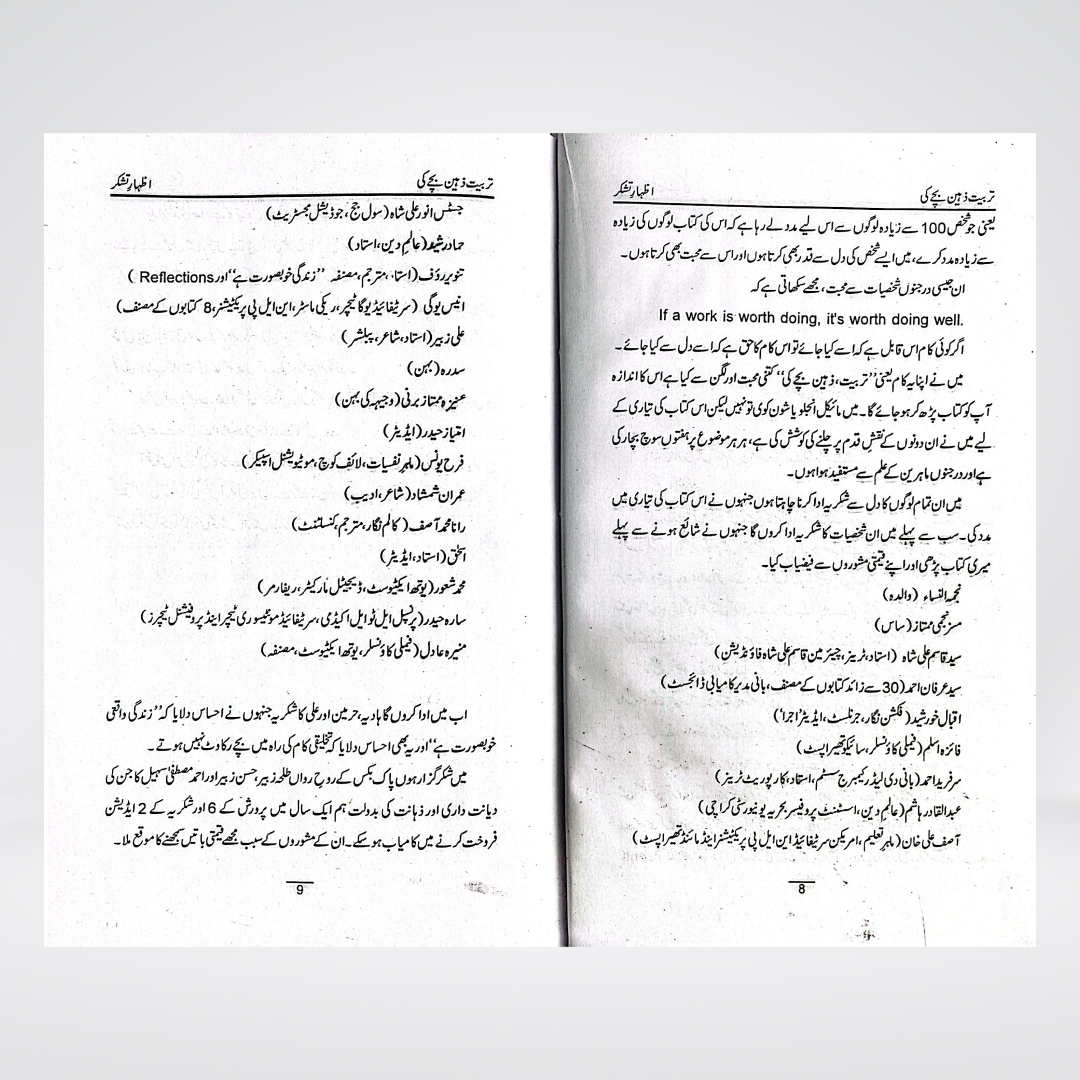 تربیت ذہین بچے کی
اظہارِ تشکر
یعنی جو شخص 100 سے زیادہ لوگوں سے اس لیے مدد لے رہا ہے کہ اس کی کتاب لوگوں کی زیادہ
سے زیادہ مدد کرے، میں ایسے شخص کی دل سے قدر بھی کرتا ہوں اور اس سے محبت بھی کرتا ہوں۔
ان جیسی درجنوں شخصیات سے محبت، مجھے سکھاتی ہے کہ
If a work is worth doing, it's worth doing well.
اگر کوئی کام اس قابل ہے کہ اسے کیا جائے تو اس کام کا حق ہے کہ اسے دل سے کیا جائے۔
میں نے اپنا یہ کام یعنی ’’تربیت، ذہین بچے کی‘‘ کتنی محبت اور لگن سے کیا ہے اس کا اندازہ
آپ کو کتاب پڑھ کر ہو جائے گا۔ میں مائیکل انجلو یا شون کوی تو نہیں لیکن اس کتاب کی تیاری کے
لیے میں نے ان دونوں کے نقشِ قدم پر چلنے کی کوشش کی ہے، ہر ہر موضوع پر ہفتوں سوچ بچار کی
ہے اور درجنوں ماہرین کے علم سے مستفید ہوا ہوں۔
میں ان تمام لوگوں کا دل سے شکریہ ادا کرنا چاہتا ہوں جنہوں نے اس کتاب کی تیاری میں
مدد کی۔ سب سے پہلے میں ان شخصیات کا شکریہ ادا کروں گا جنہوں نے شائع ہونے سے پہلے
میری کتاب پڑھی اور اپنے قیمتی مشوروں سے فیضیاب کیا۔
نجمۃ النساء (والدہ)
مسز نجمی ممتاز (ساس)
سید قاسم علی شاہ (استاد، ٹرینر، چیئرمین قاسم علی شاہ فاؤنڈیشن)
سید عرفان احمد (30 سے زائد کتابوں کے مصنف، بانی مدیر کامیابی ڈائجسٹ)
اقبال خورشید (فکشن نگار، جرنلسٹ، ایڈیٹر ’اجرا‘)
فائزہ اسلم (فیملی کاؤنسلر، سائیکوتھیراپسٹ)
سر فرید احمد (بانی دی لیڈر کیمبرج سسٹم، استاد، کارپوریٹ ٹرینر)
عبدالقادر ہاشم (عالمِ دین، اسسٹنٹ پروفیسر بحریہ یونیورسٹی کراچی)
آصف علی خان (ماہرِ تعلیم، امریکن سرٹیفائیڈ این ایل پی پریکٹیشنر اینڈ مائنڈ تھیراپسٹ)
8
تربیت ذہین بچے کی
اظہارِ تشکر
جسٹس انور علی شاہ (سول جج، جوڈیشل مجسٹریٹ)
حماد رشید (عالمِ دین، استاد)
تنویر رؤف (استاد، مترجم، مصنفہ ’’زندگی خوبصورت ہے‘‘ اور Reflections)
انیس یوگی (سرٹیفائیڈ یوگا ٹیچر، ریکی ماسٹر، این ایل پی پریکٹیشنر، 8 کتابوں کے مصنف)
علی زبیر (استاد، شاعر، پبلشر)
سدرہ (بہن)
عنیزہ ممتاز برنی (وجیہہ کی بہن)
امتیاز حیدر (ایڈیٹر)
فرح یونس (ماہرِ نفسیات، لائف کوچ، موٹیویشنل اسپیکر)
عمران شمشاد (شاعر، ادیب)
رانا محمد آصف (کالم نگار، مترجم، کنسلٹنٹ)
اسحٰق (استاد، ایڈیٹر)
محمد شعور (یوتھ ایکٹیوسٹ، ڈیجیٹل مارکیٹر، ریفارمر)
سارہ حیدر (پرنسپل ایل ٹو ایل اکیڈمی، سرٹیفائیڈ مونٹیسوری ٹیچر اینڈ پروفیشنل ٹیچرز)
منیرہ عادل (فیملی کاؤنسلر، یوتھ ایکٹیوسٹ، مصنفہ)
اب میں ادا کروں گا بادیہ، حرمین اور علی کا شکریہ جنہوں نے احساس دلایا کہ ’’زندگی واقعی
خوبصورت ہے‘‘ اور یہ بھی احساس دلایا کہ تخلیقی کام کی راہ میں بچے رکاوٹ نہیں ہوتے۔
میں شکر گزار ہوں پاک بکس کے روحِ رواں طلحہ زبیر، حسن زبیر اور احمد مصطفیٰ سہیل کا جن کی
دیانت داری اور ذہانت کی بدولت ہم ایک سال میں پرورش کے 6 اور شکریہ کے 2 ایڈیشن
فروخت کرنے میں کامیاب ہو سکے۔ ان کے مشوروں کے سبب مجھے قیمتی باتیں سمجھنے کا موقع ملا۔
9